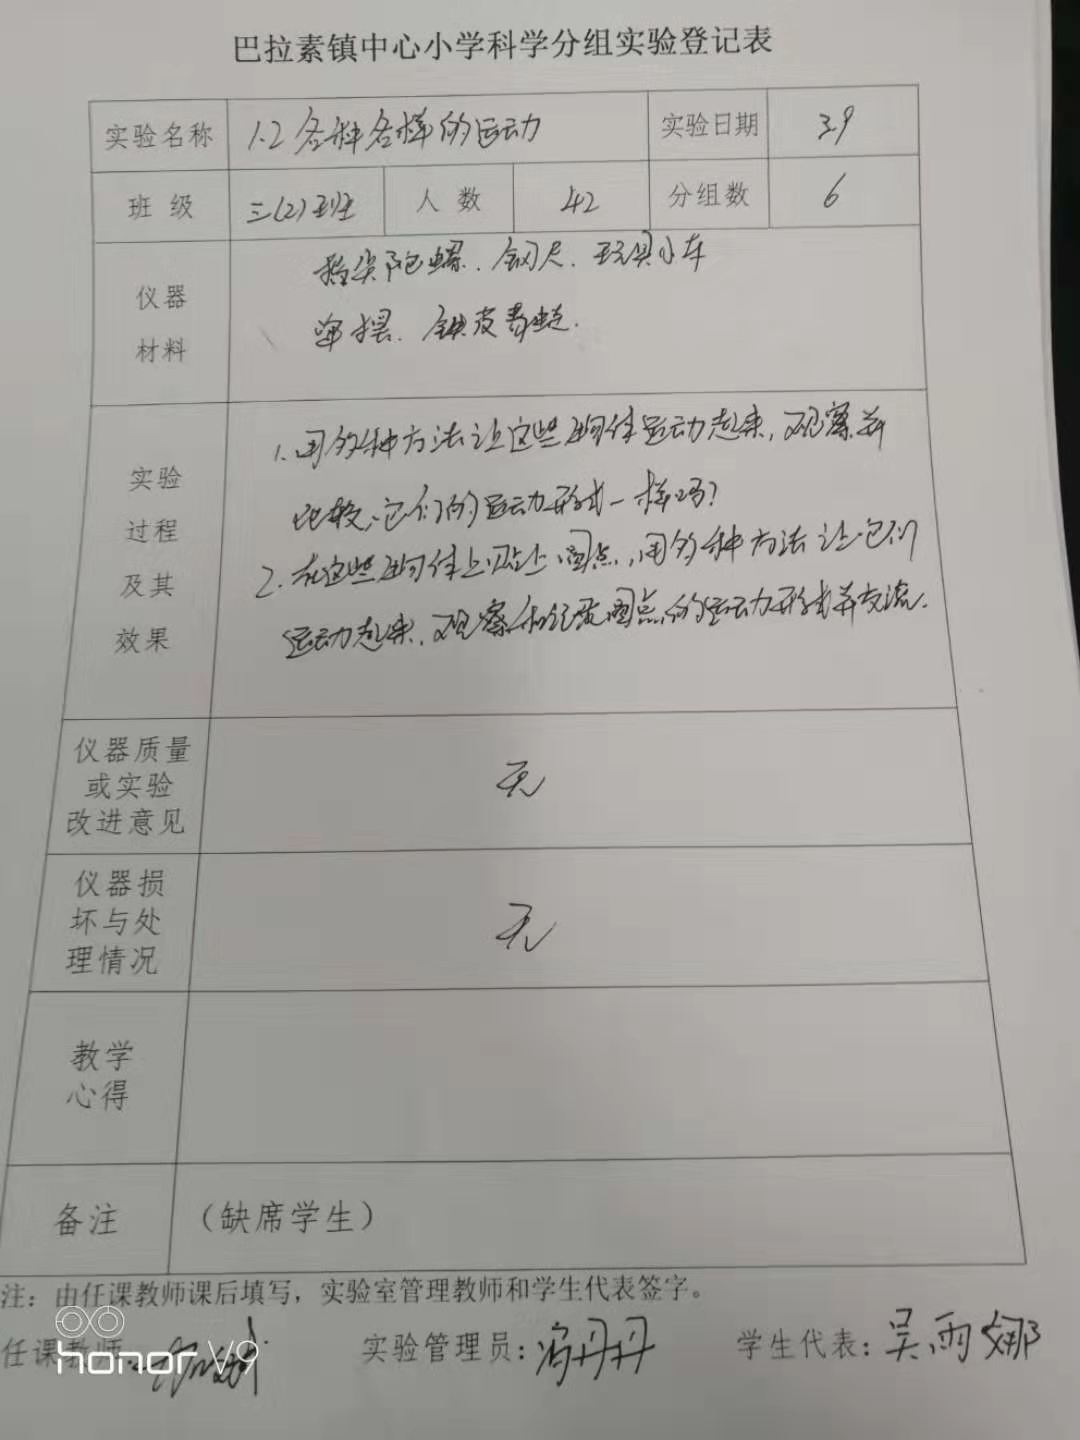 巴拉素镇中心小学科学分组实验登记表
实验名称 1.2各种各样的运动 实验日期 3.9
班级 三(2)班 人数 42 分组数 6
仪器
材料
指尖陀螺、钢尺、玩具小车
单摆、铁皮青蛙.
实验
过程
及其
效果
1.用多种方法让这些物体运动起来,观察并
比较,它们的运动形式一样吗?
2.在这些物体上贴上圆点,用多种方法让它们
运动起来,观察和记录圆点的运动形式并交流.
仪器质量
或实验
改进意见
无
仪器损
坏与处
理情况
无
教学
心得
备注 (缺席学生)
注:由任课教师课后填写,实验室管理教师和学生代表签字。
任课教师 实验管理员:冯丹丹 学生代表:吴雨娜
honor V9